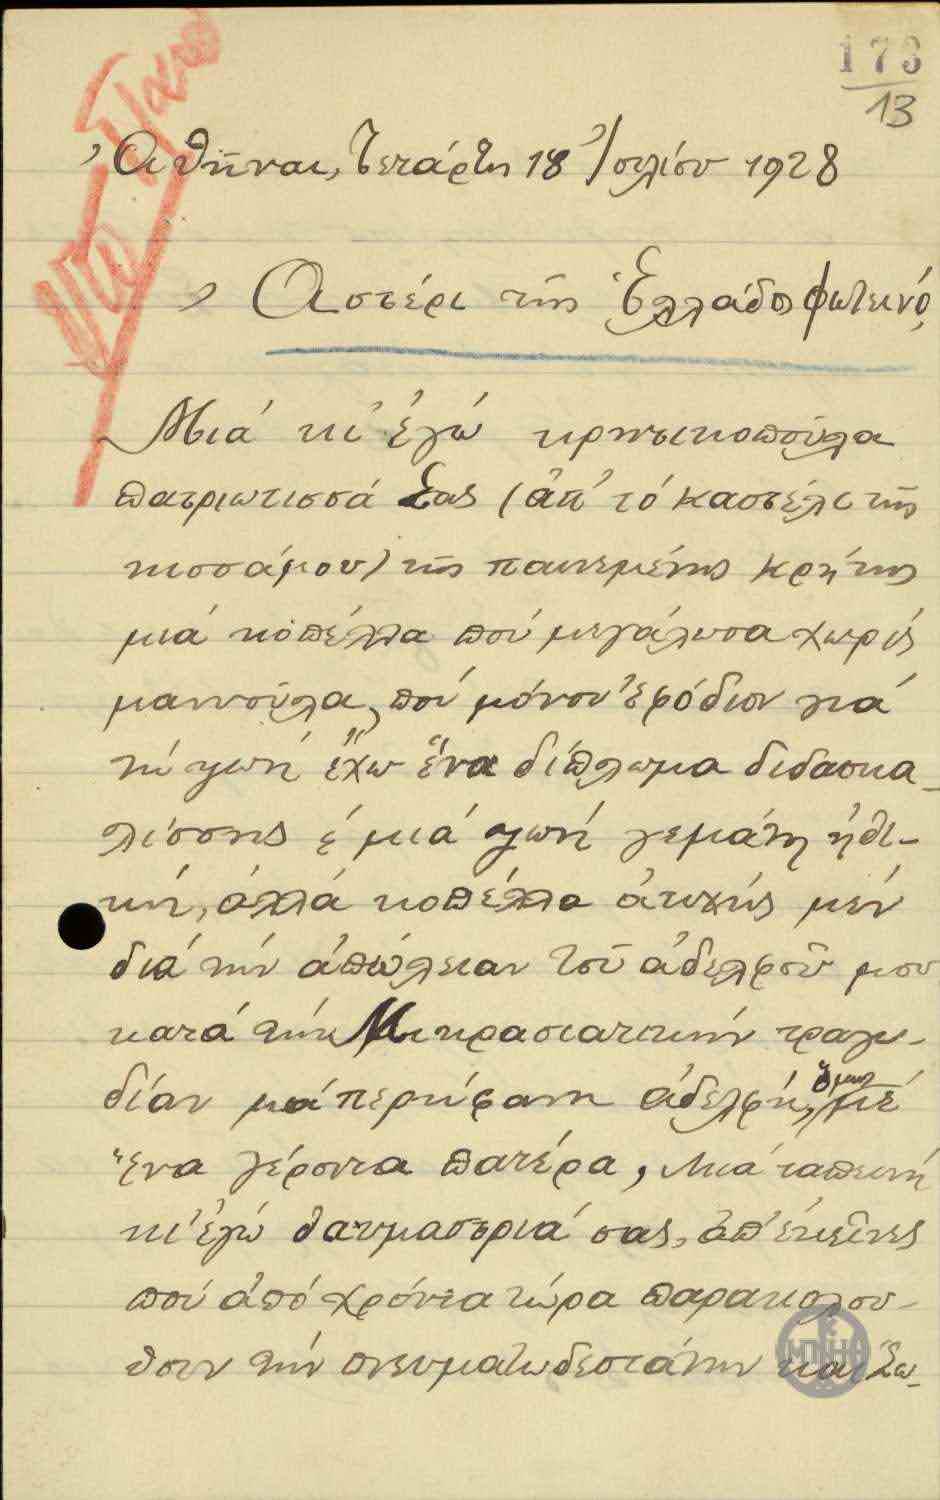 173
13
Ἀθῆναι, Τετάρτη 18 Ἰουλίου 1928
Ἀστέρι τῆς Ἑλλάδος φωτεινό,
Μιά κι' ἐγώ κρητικοπούλα
πατριώτισσά Σας (ἀπ' τό Καστέλι τῆς
Κισσάμου) τῆς παινεμένης Κρήτης
μιά κοπέλλα πού μεγάλωσα χωρίς
μαννούλα, πού μόνον ἐφόδιον γιά
τή ζωή ἔχω ἕνα δίπλωμα διδασκα-
λίσσης ἤ μιά ζωή γεμάτη ἠθι-
κή, ἀλλά κοπέλλα ἀτυχής μέν
διά τήν ἀπώλειαν τοῦ ἀδελφοῦ μου
κατά τήν Μικρασιατικήν τραγω-
δίαν μά περήφανη ἀδελφή, ὅμως μέ
ἕνα γέροντα πατέρα, Μιά ταπεινή
κι' ἐγώ θαυμάστριά σας, ἀπ' ἐκεῖνες
πού ἀπό χρόνια τώρα παρακολου-
θοῦν τήν πνευματωδεστάτην καί Σω-